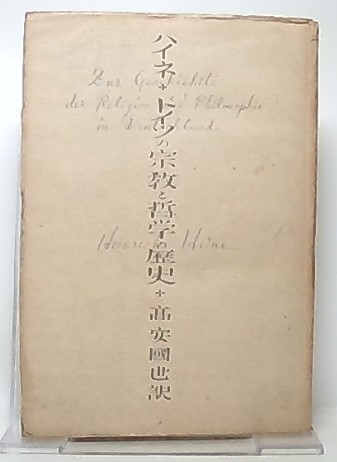 ハイネ+ドイツの宗教と哲学の歴史+高安國世訳
Zur Geschichte
der Religion und Philosophie
in Deutschland.
Heinrich Heine